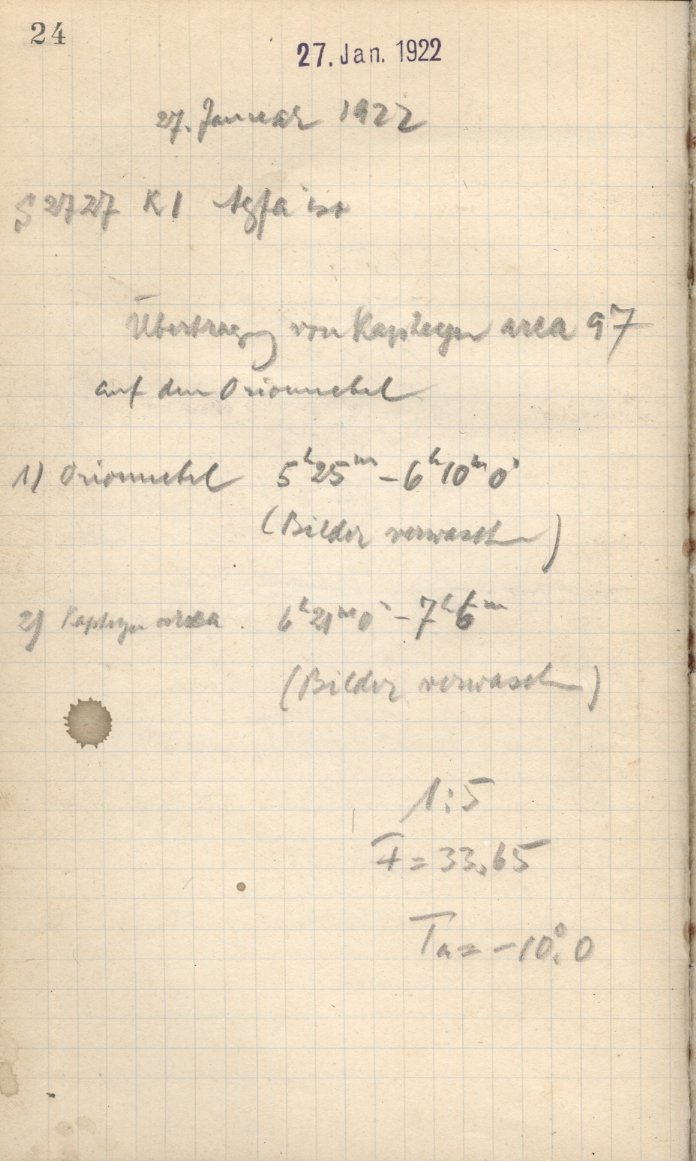 24
27. Jan. 1922
27. Januar 1922
S 2727 K1 Agfa iso
Übertragung von Kapteyn area 97
auf den Orionnebel
1) Orionnebel 5h25m – 6h10m0s
(Bilder verwaschen)
2) Kapteyn area 6h21m0s – 7h6m
(Bilder verwaschen)
1:5
F = 33,65
Ta = -10°,0